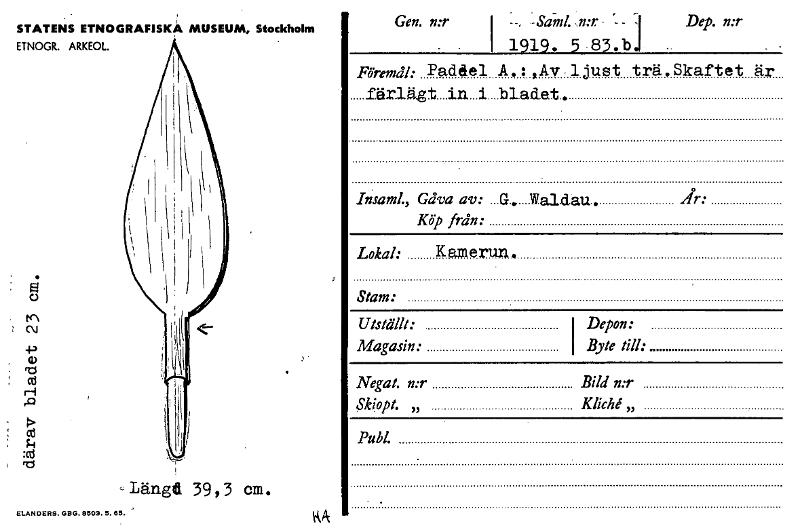 STATENS ETNOGRAFISKA MUSEUM, Stockholm
ETNOGR. ARKEOL.
därav bladet 23 cm.
Längd 39,3 cm.
ELANDERS. GBG. 8503. 5. 65.
HA
Gen. n:r Saml. n:r Dep. n:r
1919. 5 83.b.
Föremål: Paddel A.:.Av ljust trä.Skaftet är
färlägt in i bladet.
Insaml., Gåva av: G. Waldau. År:
Köp från:
Lokal: Kamerun.
Stam:
Utställt: Depon:
Magasin: Byte till:
Negat. n:r Bild n:r
Skiopt. „ Kliché „
Publ.